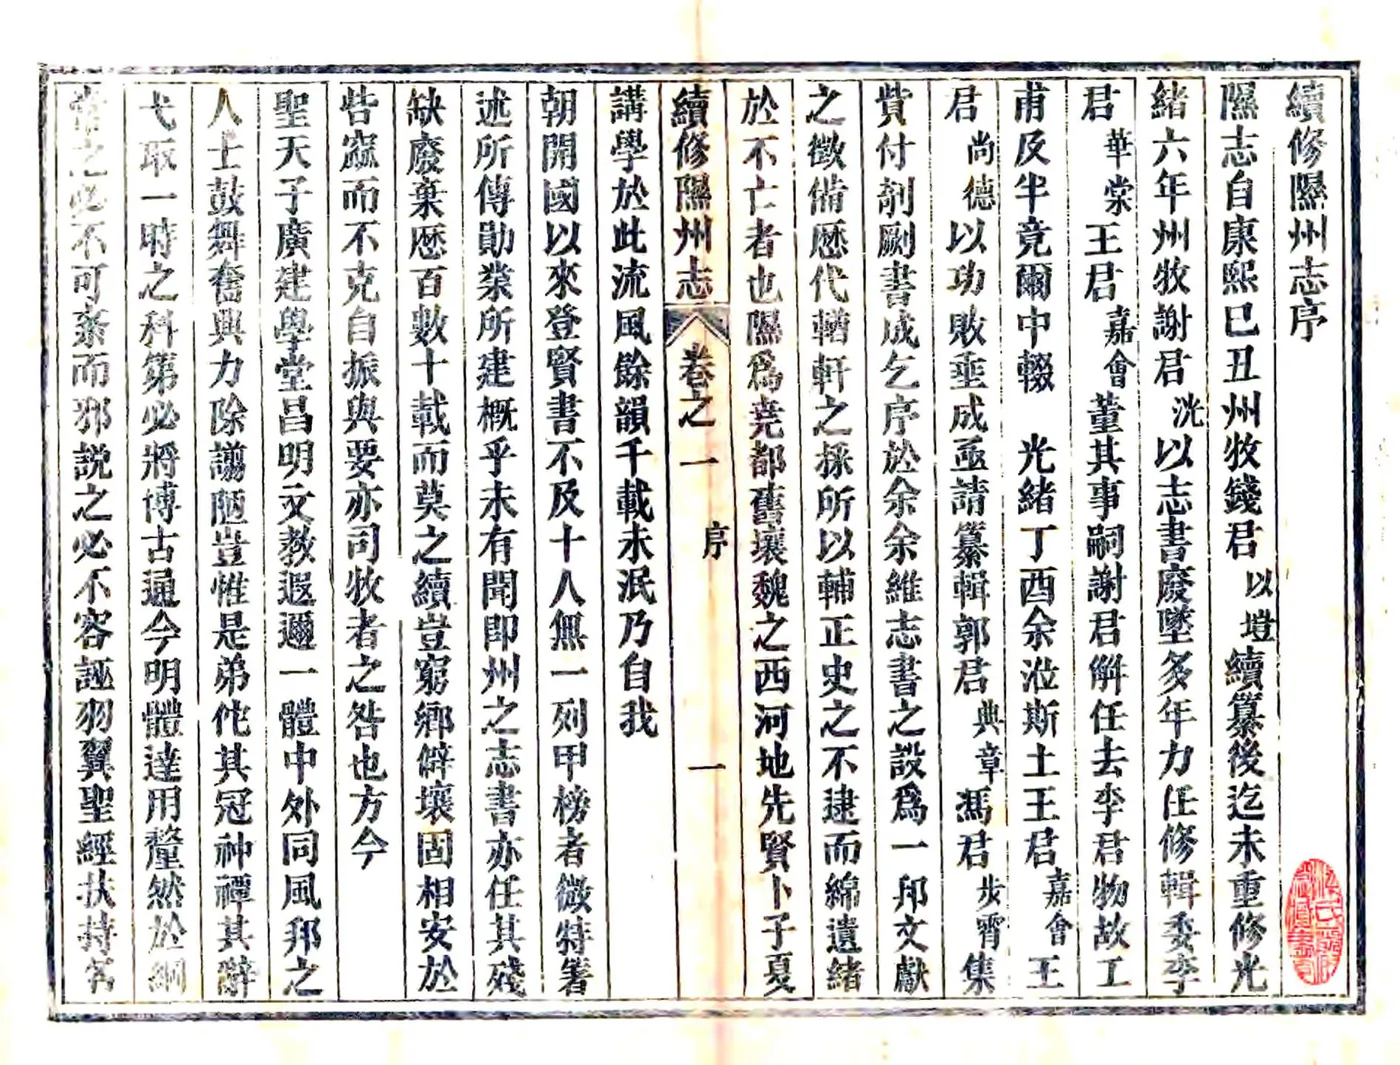 續修隰州志序
隰志自康熙己丑州牧錢君以塏續纂後迄未重修光
緒六年州牧謝君洸以志書廢墜多年力任修輯委李
君華棠王君嘉會董其事嗣謝君觧任去李君物故工
甫及半竟爾中輟　光緒丁酉余涖斯土王君嘉會王
君尚德以功敗垂成亟請纂輯郭君典章馮君步霄集
貲付剞劂書成乞序於余余維志書之設爲一邦文獻
之徵備歷代輶軒之採所以輔正史之不逮而綿遺緒
於不亡者也隰爲堯都舊壤魏之西河地先賢卜子夏
續修隰州志　卷之一　序　一
講學於此流風餘韻千載未泯乃自我
朝開國以來登賢書不及十人無一列甲榜者微特著
述所傳勛業所建概乎未有聞即州之志書亦任其殘
缺廢棄歷百數十載而莫之續豈窮鄉僻壤固相安於
呰窳而不克自振與要亦司牧者之咎也方今
聖天子廣建學堂昌明文教遐邇一體中外同風邦之
人士鼓舞奮興力除譾陋豈惟是弟佗其冠神禫其辭
弋取一時之科第必將博古通今明體達用釐然於綱
常之必不可紊而邪説之必不容誣羽翼聖經扶持名